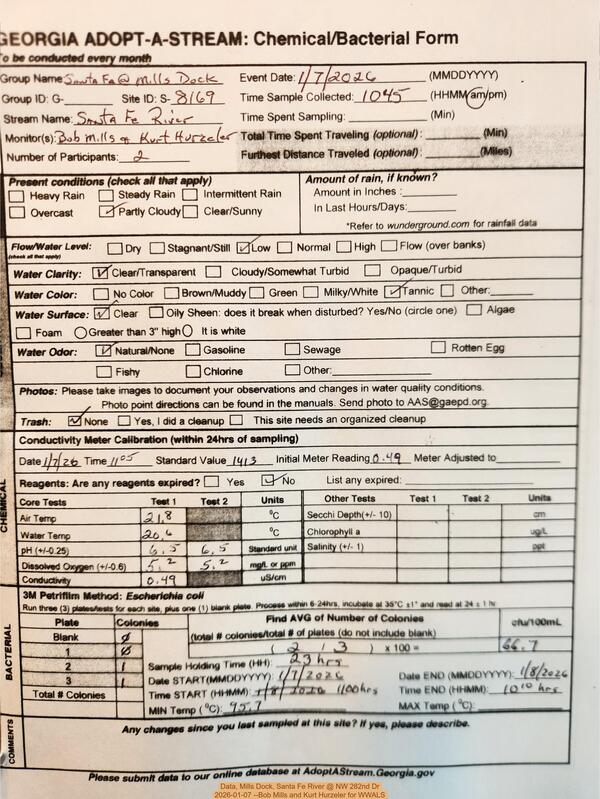 GEORGIA ADOPT-A-STREAM: Chemical/Bacterial Form
To be conducted every month
Group Name: Santa Fe @ Mills Dock Event Date: 1/7/2026 (MMDDYYYY)
Group ID: G- Site ID: S- 8169 Time Sample Collected: 1045 (HHMM am/pm)
Stream Name: Santa Fe River Time Spent Sampling: (Min)
Monitor(s): Bob Mills & Kurt Hurzeler Total Time Spent Traveling (optional): (Min)
Number of Participants: 2 Furthest Distance Traveled (optional): (Miles)
Present conditions (check all that apply) Amount of rain, if known?
Heavy Rain Steady Rain Intermittent Rain Amount in Inches:
Overcast Partly Cloudy Clear/Sunny In Last Hours/Days:
*Refer to wunderground.com for rainfall data
Flow/Water Level: Dry Stagnant/Still Low Normal High Flow (over banks)
(check all that apply)
Water Clarity: Clear/Transparent Cloudy/Somewhat Turbid Opaque/Turbid
Water Color: No Color Brown/Muddy Green Milky/White Tannic Other:
Water Surface: Clear Oily Sheen: does it break when disturbed? Yes/No (circle one) Algae
Foam Greater than 3" high It is white
Water Odor: Natural/None Gasoline Sewage Rotten Egg
Fishy Chlorine Other:
Photos: Please take images to document your observations and changes in water quality conditions.
Photo point directions can be found in the manuals. Send photo to AAS@gaepd.org.
Trash: None Yes, I did a cleanup This site needs an organized cleanup
Conductivity Meter Calibration (within 24hrs of sampling)
Date 1/7/26 Time 1105 Standard Value 1413 Initial Meter Reading 0.49 Meter Adjusted to
Reagents: Are any reagents expired? Yes No List any expired:
CHEMICAL
Core Tests Test 1 Test 2 Units Other Tests Test 1 Test 2 Units
Air Temp 21.8 °C Secchi Depth(+/- 10) cm
Water Temp 20.6 °C Chlorophyll a ug/L
pH (+/-0.25) 6.5 6.5 Standard unit Salinity (+/- 1) ppt
Dissolved Oxygen (+/-0.6) 5.2 5.2 mg/L or ppm
Conductivity 0.49 uS/cm
BACTERIAL
3M Petrifilm Method: Escherichia coli
Run three (3) plates/tests for each site, plus one (1) blank plate. Process within 6-24hrs, incubate at 35°C ±1° and read at 24 ± 1 hr
Plate Colonies Find AVG of Number of Colonies cfu/100mL
Blank 0 (total # colonies/total # of plates (do not include blank)
1 0 ( 2 / 3 ) x 100 = 66.7
2 1 Sample Holding Time (HH): 23 hrs
3 1 Date START(MMDDYYYY): 1/7/2026 Date END (MMDDYYYY): 1/8/2026
Total # Colonies Time START (HHMM): 1/8/2026 1100hrs Time END (HHMM): 1010 hrs
MIN Temp (°C): 95.7 MAX Temp (°C):
COMMENTS
Any changes since you last sampled at this site? If yes, please describe.
Please submit data to our online database at AdoptAStream.Georgia.gov
Data, Mills Dock, Santa Fe River @ NW 282nd Dr
2026-01-07 --Bob Mills and Kurt Hurzeler for WWALS